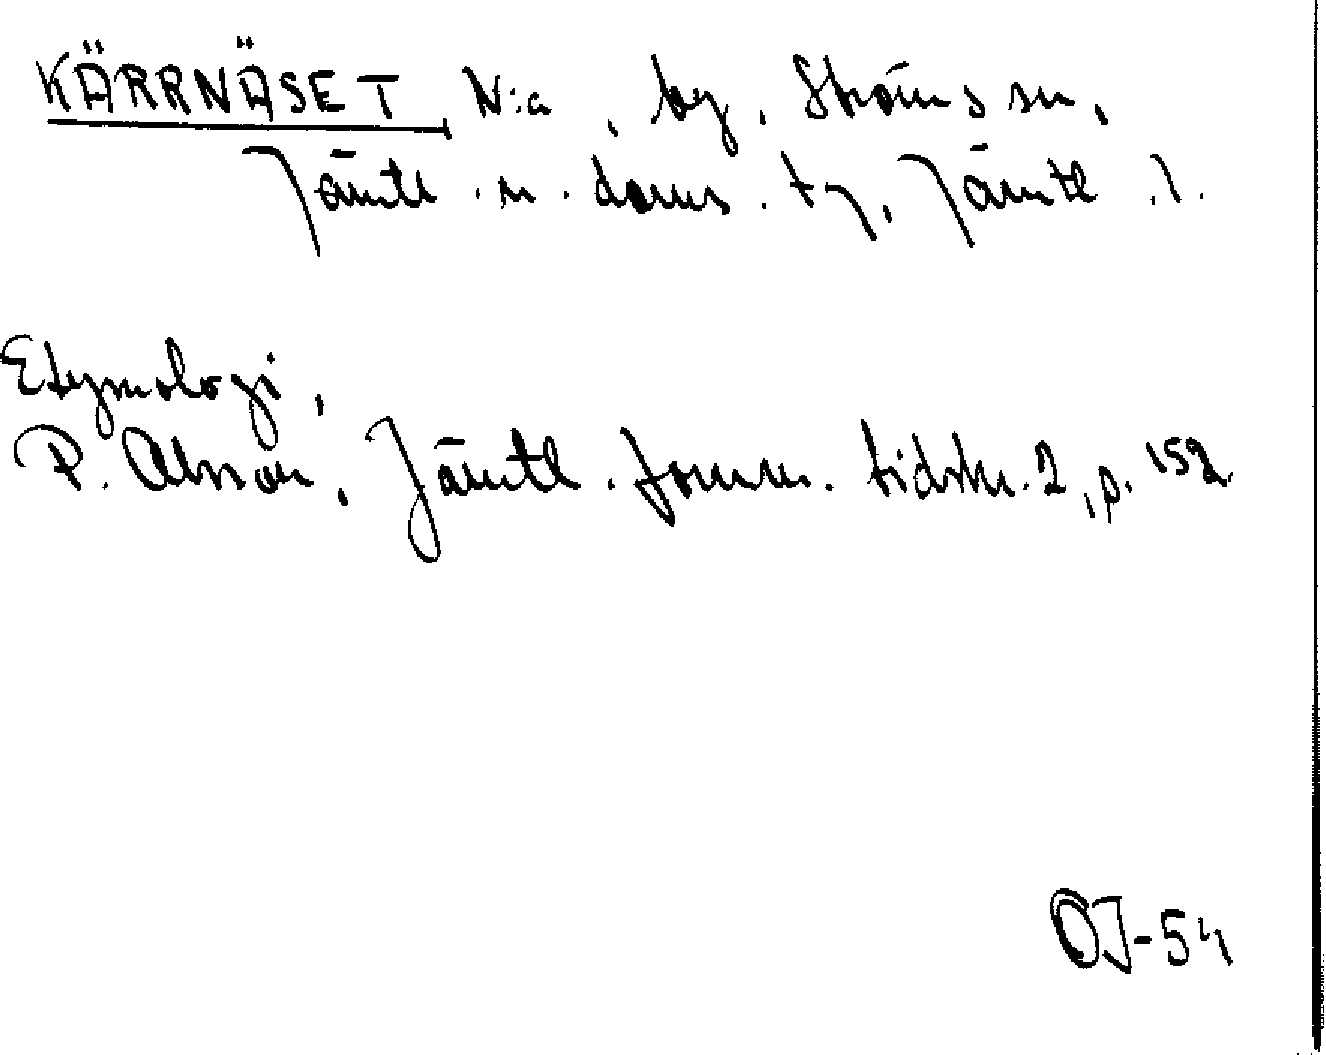 KÄRRNÄSET N:a, by, Ströms sn,
Jämtl. n. doms. tg, Jämtl. l.
Etymologi,
P. Olsson, Jämtl. fornm. tidskr. 2, p. 152
OJ-54